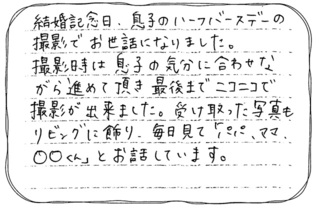 結婚記念日、息子のハーフバースデーの
撮影でお世話になりました。
撮影時は息子の気分に合わせな
がら進めて頂き最後までニコニコで
撮影が出来ました。受け取った写真も
リビングに飾り、毎日見て「パパ、ママ、
〇〇くん」とお話しています。